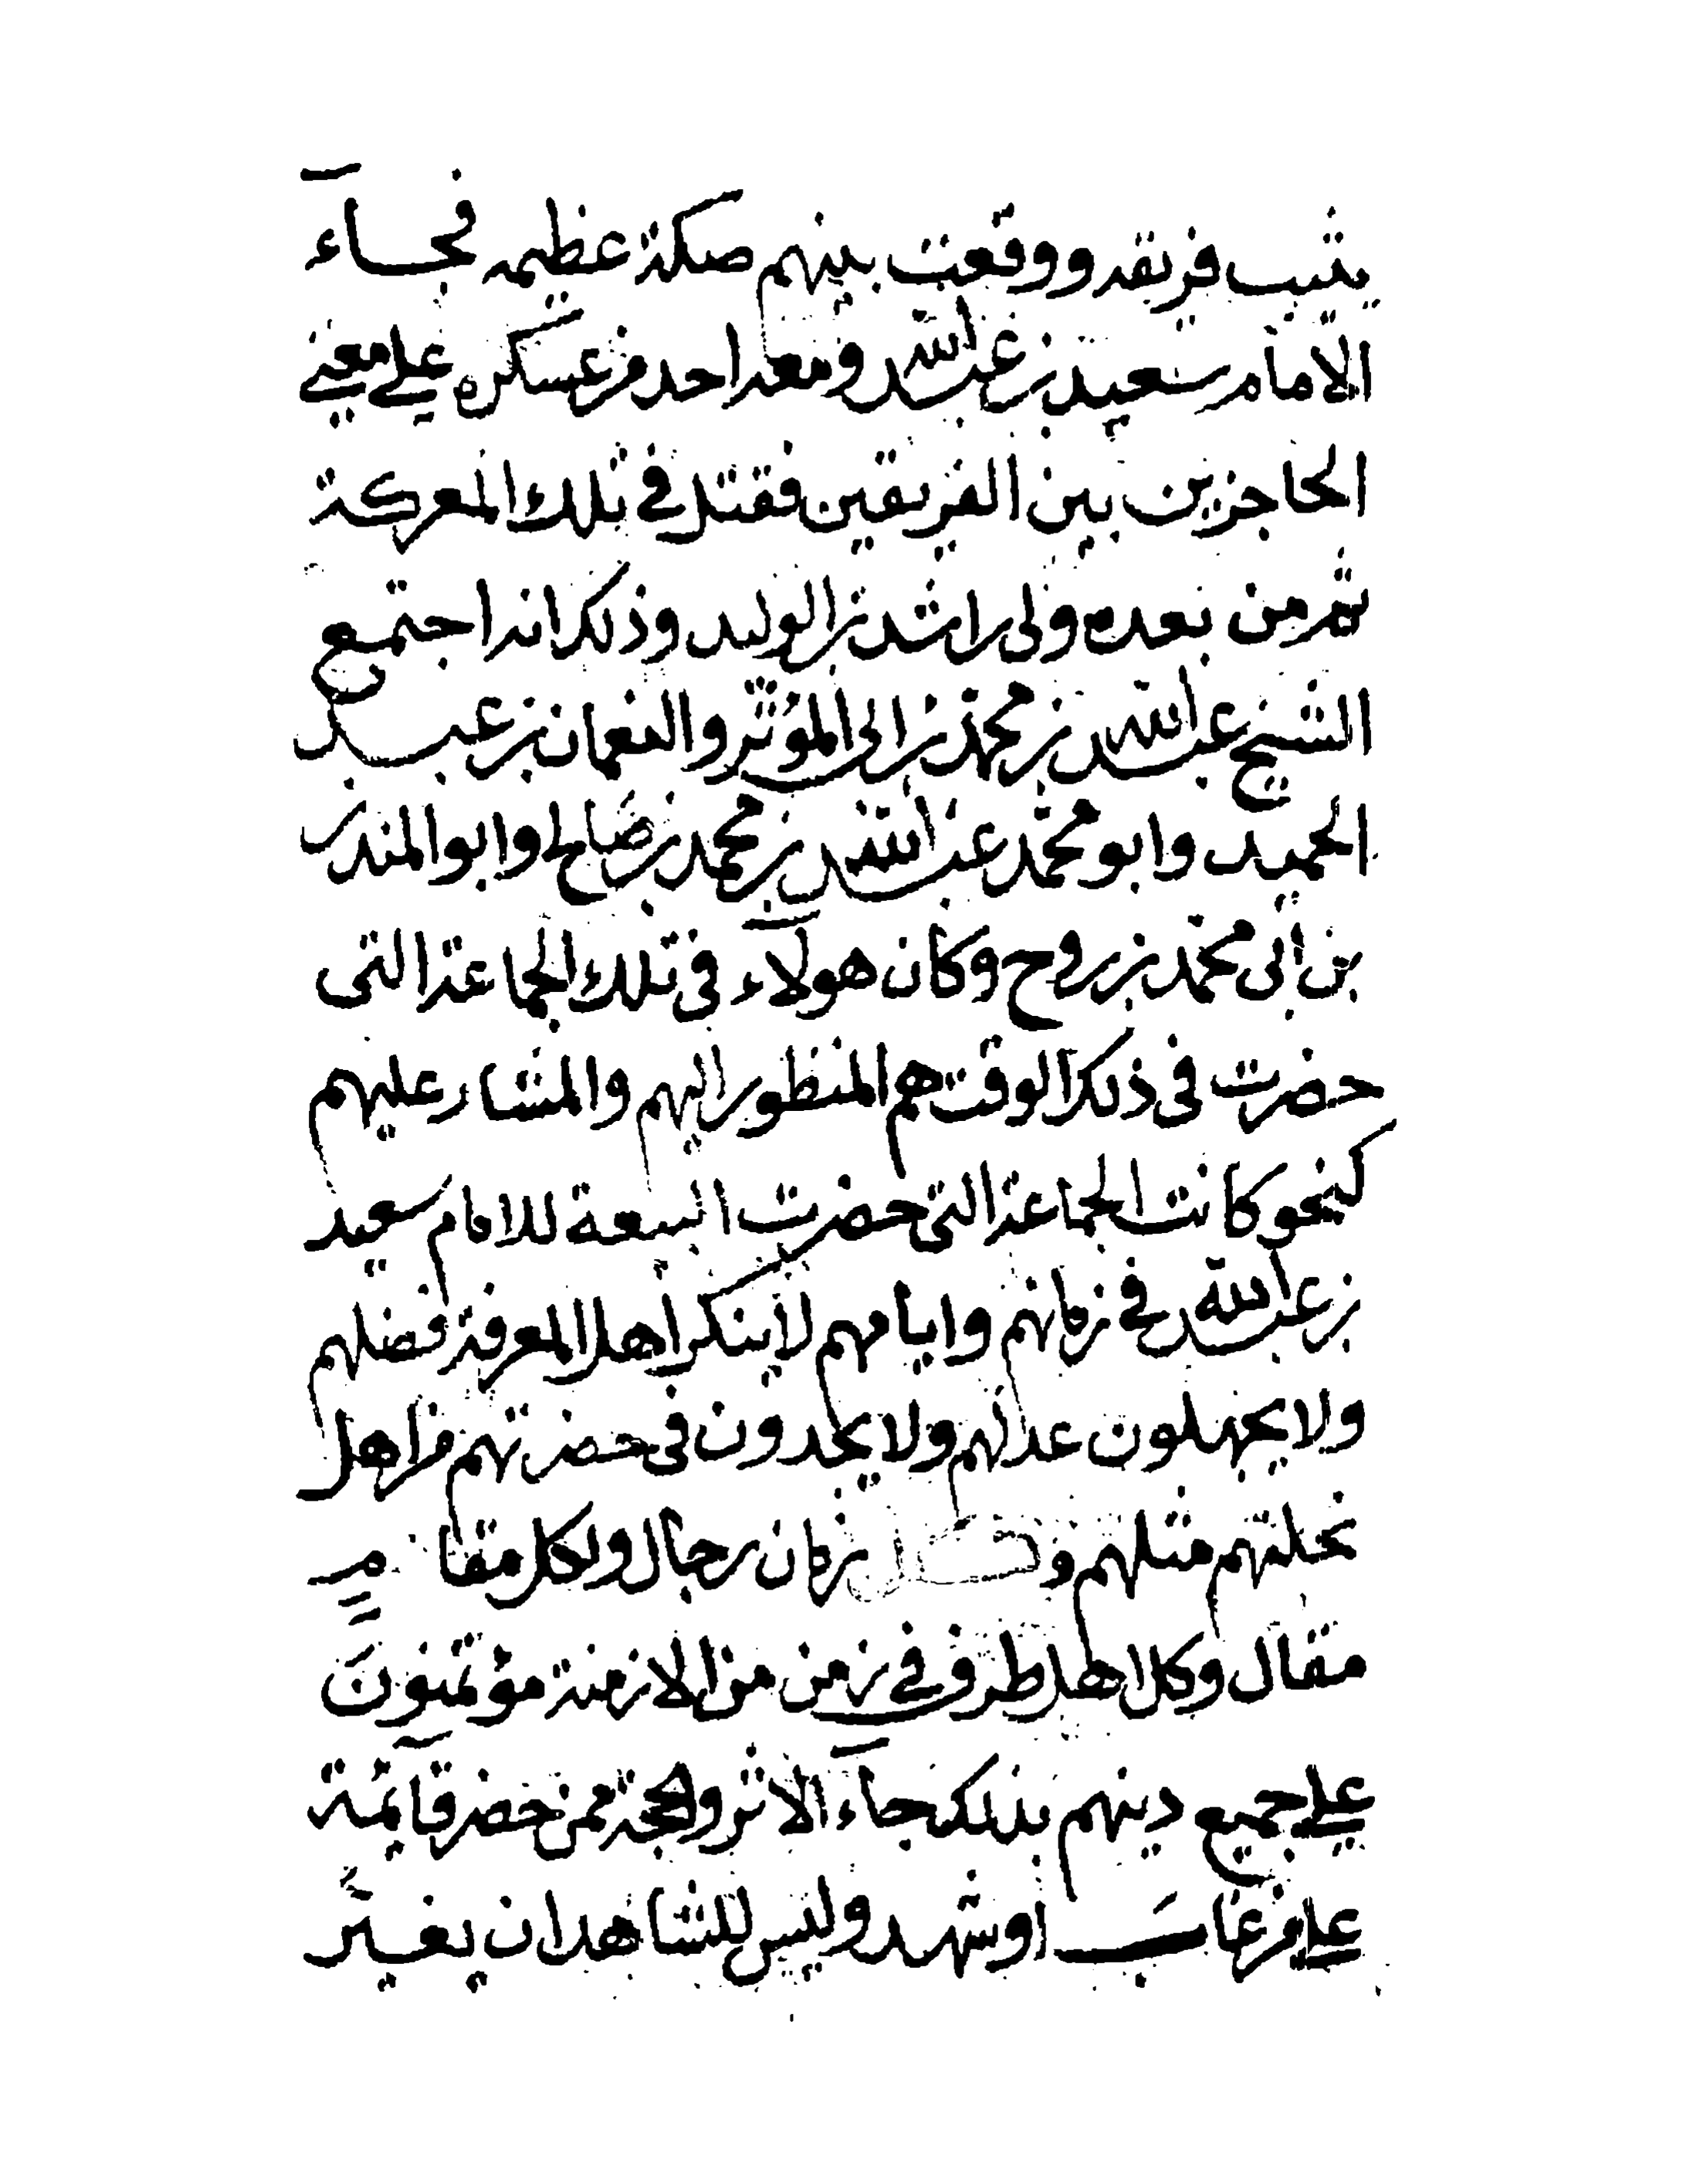 يثيب فريقه ووقعت بينهم صكة عظيمه فجاءَ
الامام سعيد بن عبدالله ومعه احد من عسكره علي معني
الحاجزين بين الفريقين فقتل في تلك المعركة
ثم من بعده ولى راشد بن الوليد وذلك انه اجتمع
الشيخ عبدالله بن محمد بن ابى المؤثر والنعمان بن عبد
الحميد وابو محمد عبدالله بن محمد بن صالح وابو المنذر
بن ابى محمد بن روح وكان هولاء في تلك الجماعة التى
حضرت فى ذلك الوقت هم المنظور اليهم والمشار عليهم
كنحو كانت الجماعة التي حضرت البيعة للامام سعيد
بن عبدالله في زمانهم وايامهم لا ينكر اهل المعرفة فضلهم
ولا يجهلون عدلهم ولا يجدون فى حضرتهم من اهل
نحلتهم مثلهم ولكل زمان رجال ولكل مقام
مقال وكل اهل طرف في زمن من الازمنة مؤتمنون
علي جميع دينهم بذلك جاء الاثر والحجة ممن حضر قايمة
علي من غاب او شهد وليس للشاهد ان يغير